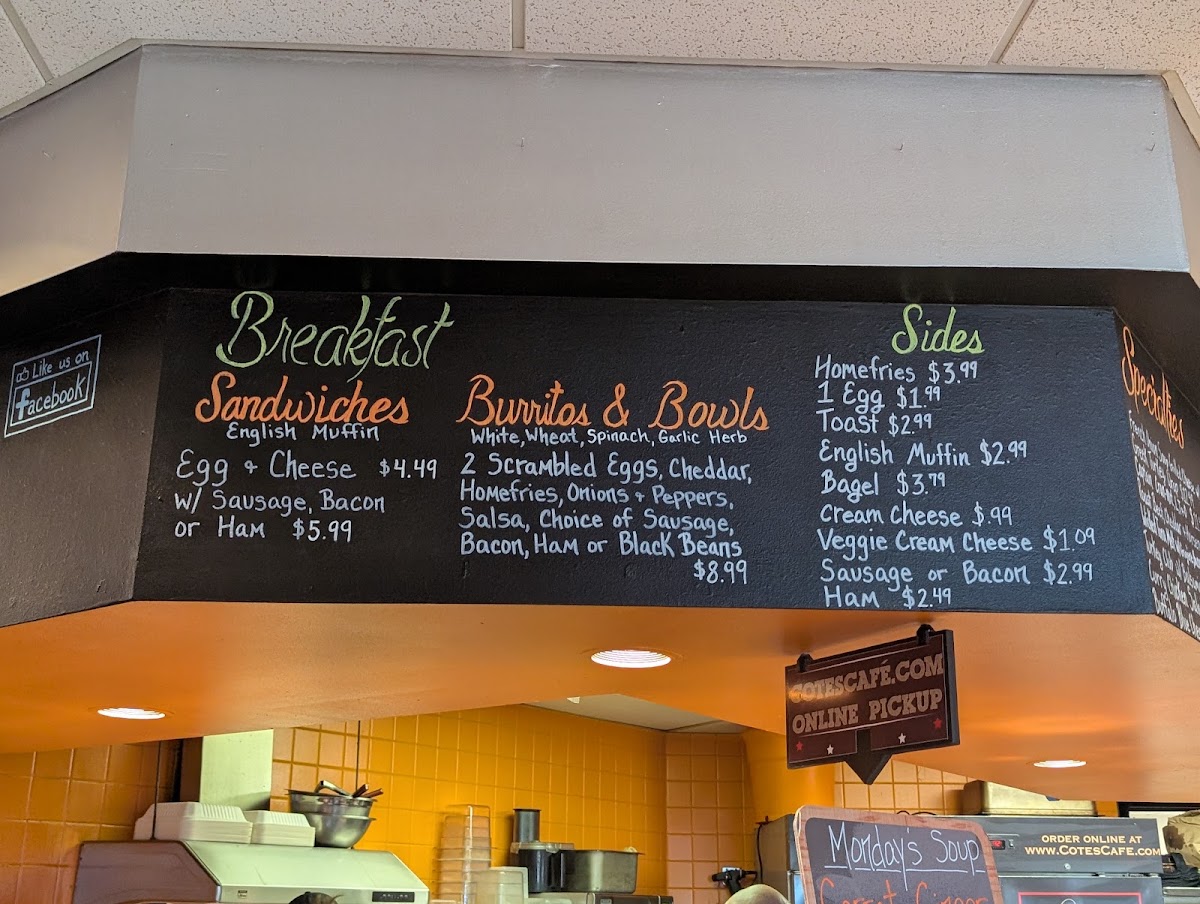 Like us on
facebook
Breakfast
Sandwiches
English Muffin
Egg & Cheese $4.49
w/ Sausage, Bacon
or Ham $5.99
Burritos & Bowls
White, Wheat, Spinach, Garlic Herb
2 Scrambled Eggs, Cheddar,
Homefries, Onions & Peppers,
Salsa, Choice of Sausage,
Bacon, Ham or Black Beans
$8.99
Sides
Homefries $3.99
1 Egg $1.99
Toast $2.99
English Muffin $2.99
Bagel $3.79
Cream Cheese $.99
Veggie Cream Cheese $1.09
Sausage or Bacon $2.99
Ham $2.49
Specialties
COTESCAFÉ.COM
ONLINE PICKUP
Monday's Soup
Carrot Ginger
ORDER ONLINE AT
WWW.COTESCAFE.COM